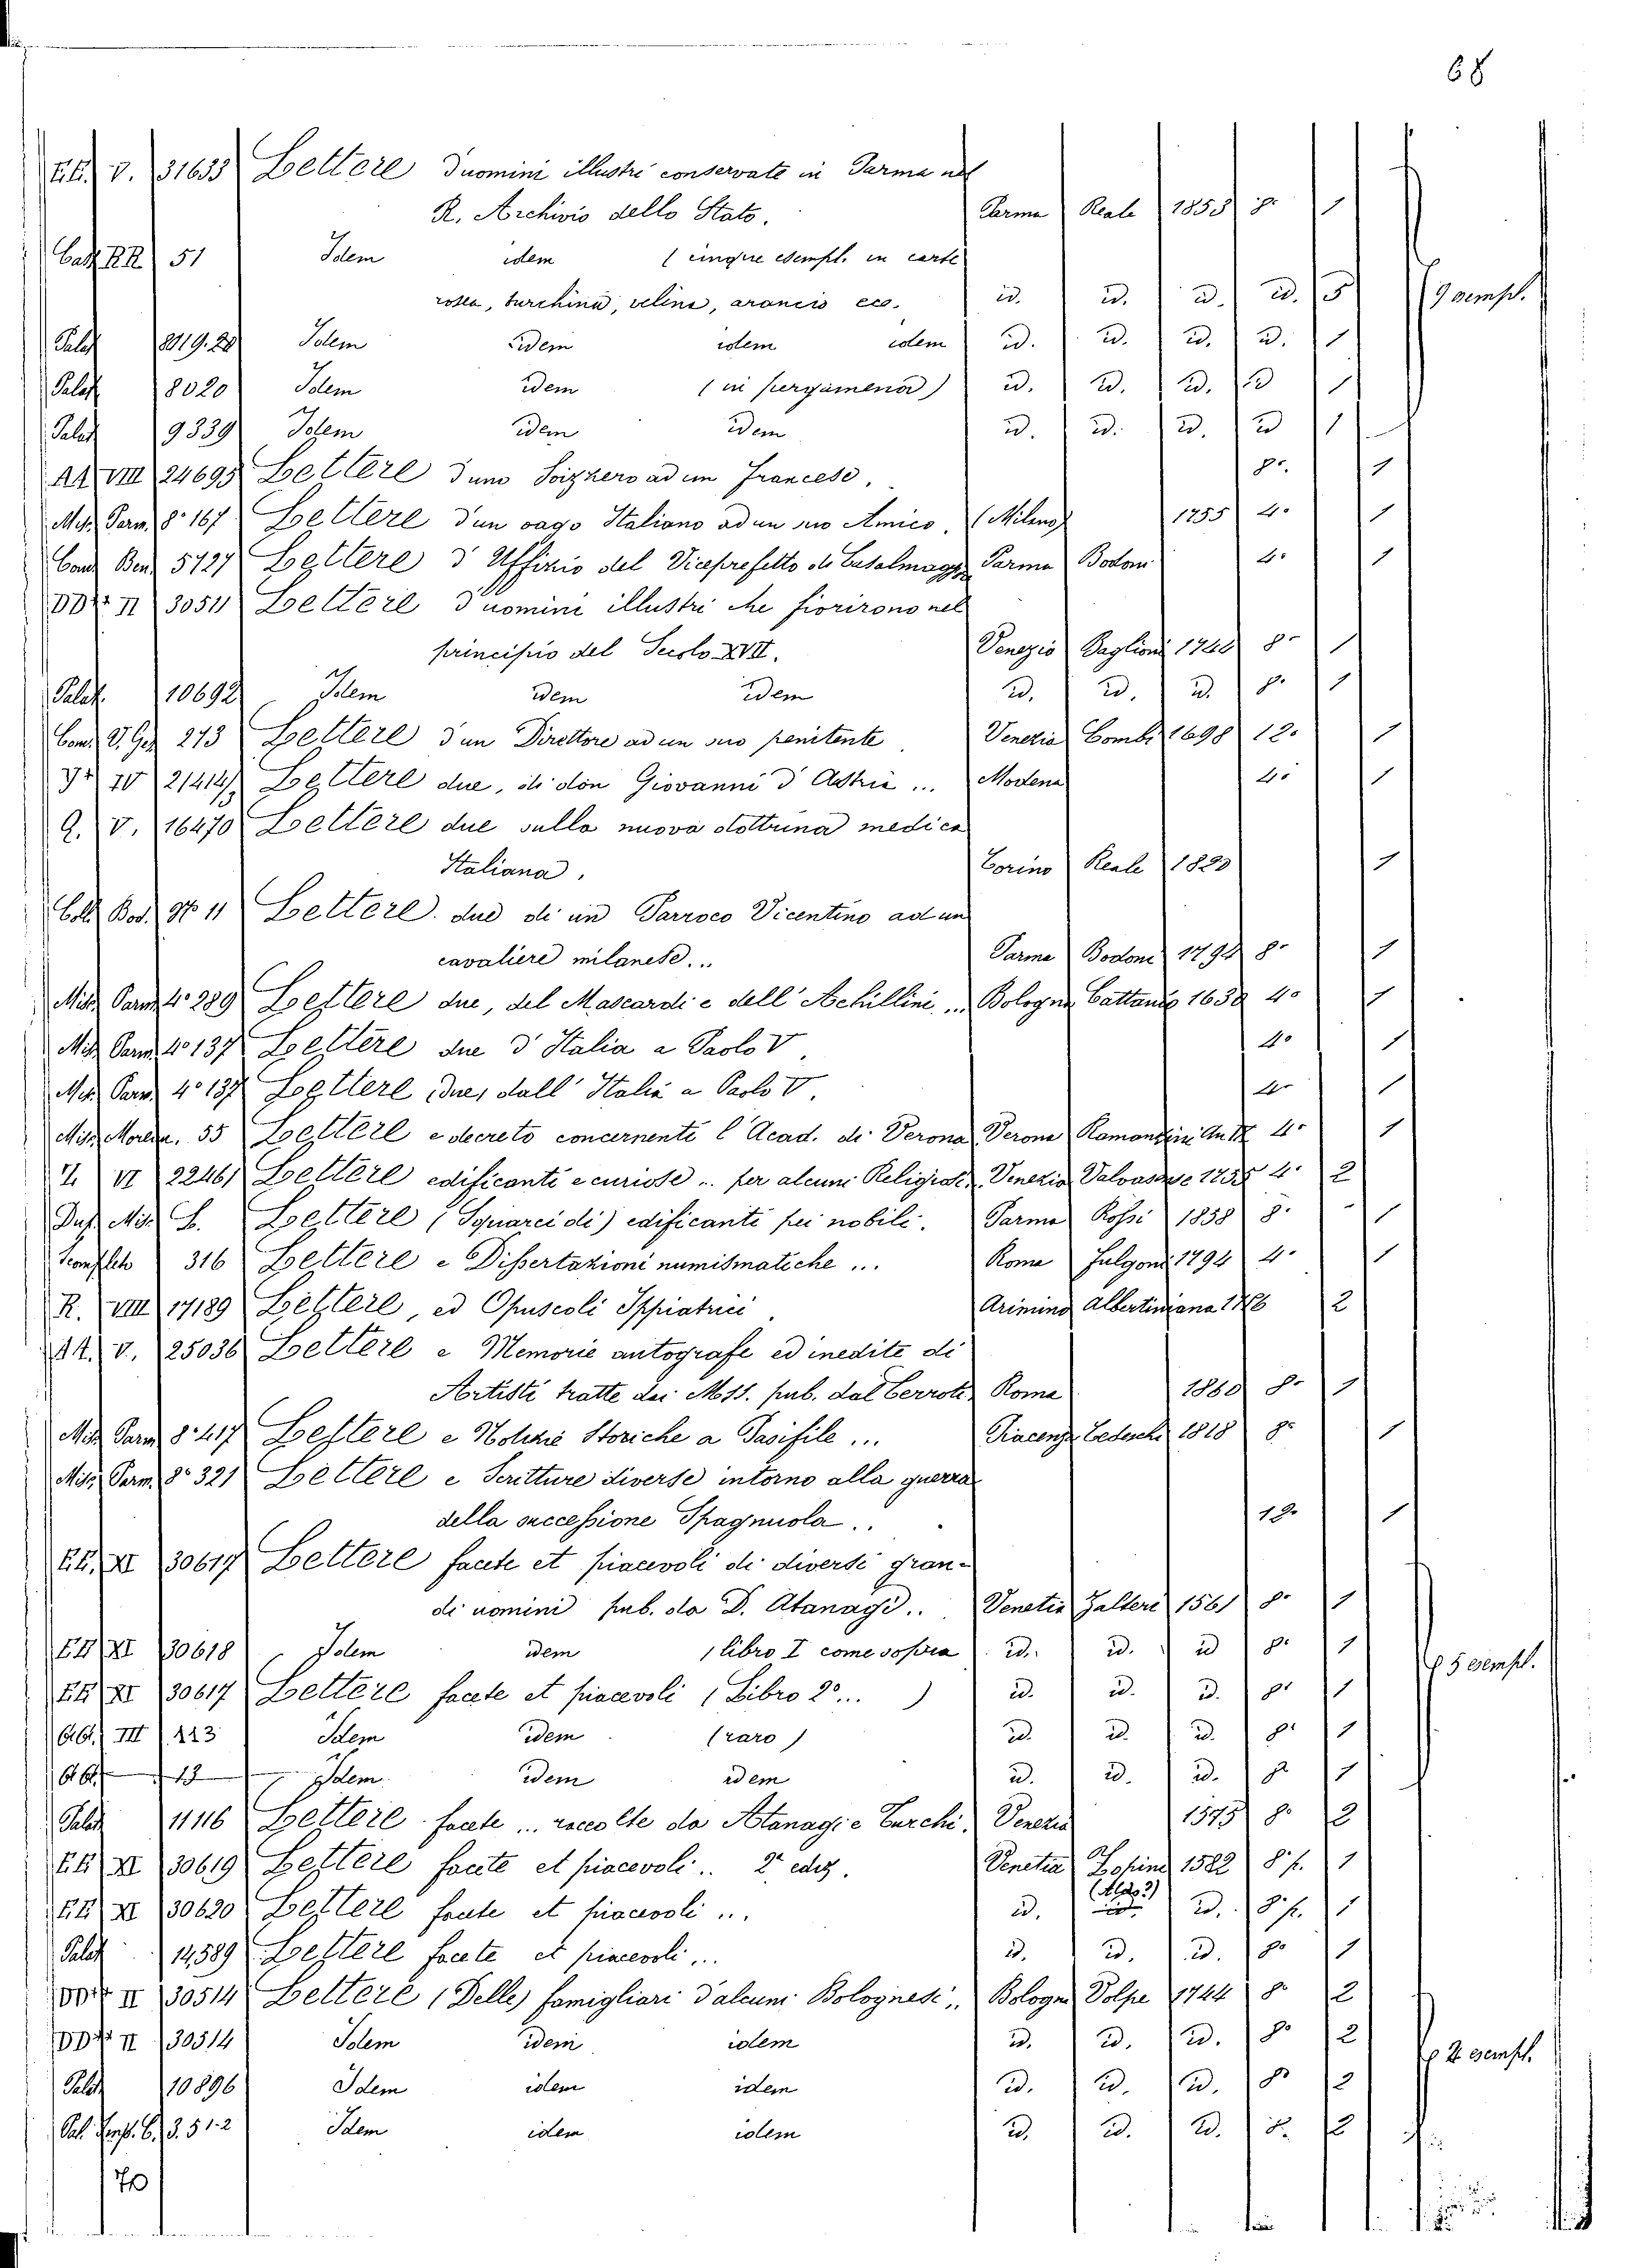 68
V. 31633 Lettere d'uomini illustri conservate in Parma nel
R. Archivio dello Stato. Parma Reale 1853 8° 1
51 Idem idem (cinque esempl. in carte
rosea, turchina, velina, arancio ecc. id. id. id. id. 5 9 esempl.
Palat Idem idem idem idem id. id. id. id. 1
Palat 8020 Idem idem (in pergamena) id. id. id. id 1
Palat 9339 Idem idem idem id. id. id. id 1
VIII 24695 Lettere d'uno Svizzero ad un Francese. 8°. 1
Misc. Parm. 8° 167 Lettere d'un vago Italiano ad un suo Amico. (Milano) 1755 4° 1
5727 Lettere d'Uffizio del Viceprefetto di Casalmagg. Parma Bodoni 4° 1
II 30511 Lettere d'uomini illustri che fiorirono nel
principio del Secolo XVII. Venezia Baglioni 8° 1
Palat. 10692 Idem idem idem id. id. id. 8° 1
273 Lettere d'un Direttore ad un suo penitente. Venezia Combi 1698 12° 1
IV 21414 Lettere due, di don Giovanni d' ... Modena 4° 1
Q. V. 16470 Lettere due sulla nuova dottrina medica
Italiana. Torino Reale 1
Bod. N° 11 Lettere due di un Parroco Vicentino ad un
cavaliere milanese... Parma Bodoni 1794 8° 1
Misc. Parm. 4° 289 Lettere due, del Mascardi e dell'Achillini... Bologna 4° 1
Misc. Parm. 4° 137 Lettere due d'Italia a Paolo V. 4° 1
Misc. Parm. 4° 137 Lettere due, dall'Italia a Paolo V. 4° 1
55 Lettere e decreto concernenti l'Acad. di Verona Verona Ramanzini 4° 1
VI 22461 Lettere edificanti e curiose .. per alcuni Religiosi. Venezia Valvasense 4° 2
Misc. Lettere (Squarci di) edificanti pei nobili. Parma Rossi 1838 8° 1
316 Lettere e Dissertazioni numismatiche ... Roma Fulgoni 1794 4° 1
R. VIII 17189 Lettere, ed Opuscoli Ippiatrici. Arimino Albertiniana 2
V. 25036 Lettere e Memorie autografe ed inedite di
Artisti tratte dai Mss. pub. dal Cerroti. Roma 1860 8° 1
Misc. Parm. 8° 417 Lettere e Notizie Storiche a Pasifile ... Piacenza Tedeschi 1818 8° 1
Misc. Parm. 8° 321 Lettere e Scritture diverse intorno alla guerra
della successione Spagnuola.. 12° 1
XI 30617 Lettere facete et piacevoli di diversi gran-
di uomini pub. da D. Atanagi.. Venetia Zalteri 1561 8° 1
XI 30618 Idem idem (libro I come sopra id. id. id 8° 1 5 esempl.
XI 30617 Lettere facete et piacevoli (Libro 2°...) id. id. id. 8° 1
III 223 Idem idem (raro) id. id. id. 8° 1
13 Idem idem idem id. id. id. 8° 1
Palat 11116 Lettere facete ... raccolte da Atanagi e Turchi. Venezia 1575 8° 2
XI 30619 Lettere facete et piacevoli.. 2ª ediz. Venetia 1582 8° p. 1
XI 30620 Lettere facete et piacevoli ... id. (Aldo?) id. 8° p. 1
Palat 14,589 Lettere facete et piacevoli ... id. id. id. 8° 1
II 30514 Lettere (Delle) famigliari d'alcuni Bolognesi.. Bologna Volpe 1744 8° 2
II 30514 Idem idem idem id. id. id. 8° 2 2 esempl.
Palat 10896 Idem idem idem id. id. id. 8° 2
3. 51-2 Idem idem idem id. id. id. 8. 2
70